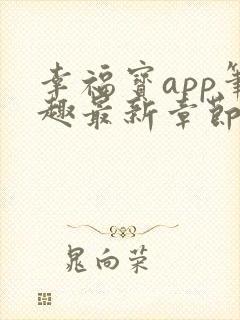 幸福寶app筆
趣最新章節
晁向荣